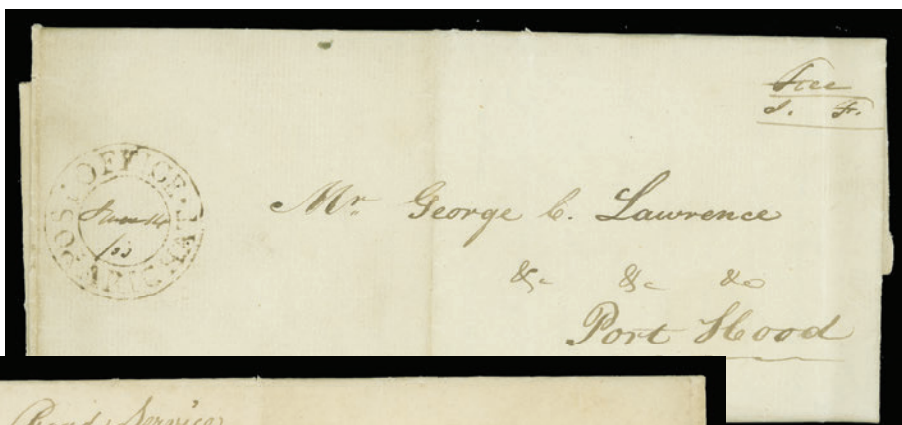 Free
J. F.
POST OFFICE
June 14
/53
Mr. George C. Lawrence
&c &c &c
Port Hood
Road Service